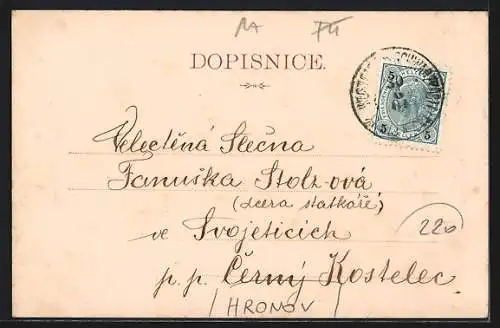 DOPISNICE.
5 5
Velectěná Slečna
Fanuška Stolz-ová
(dcera statkáře)
ve Svojeticích
220
p. p. Černý Kostelec
/HRONOV/